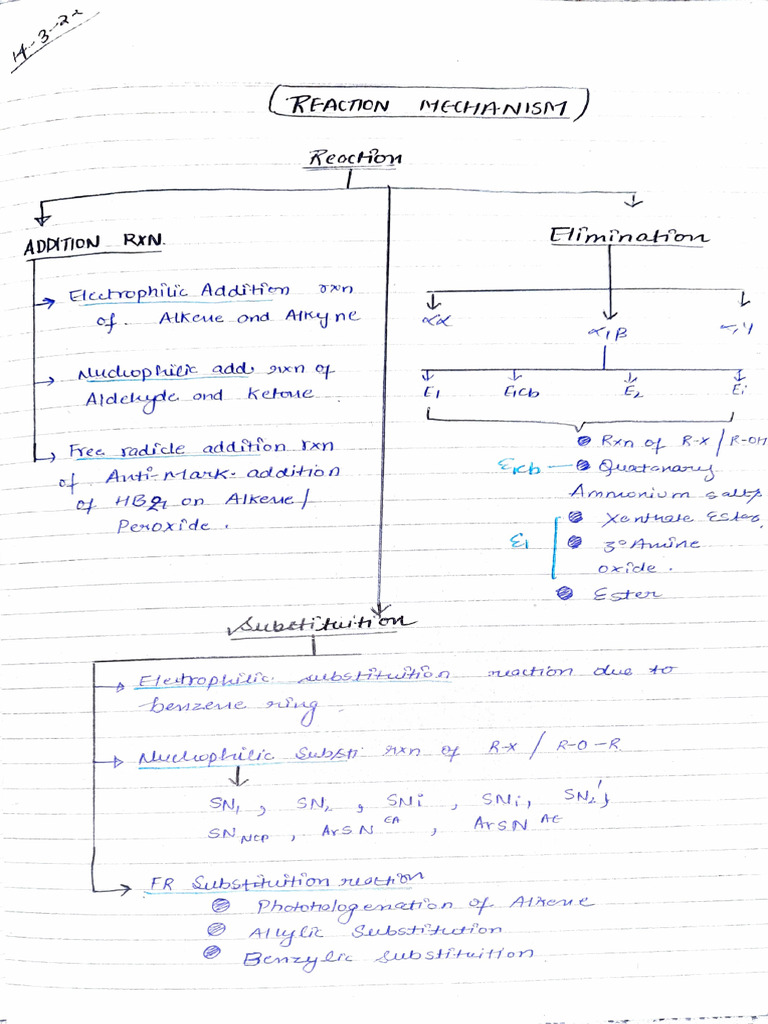 14-3-22
REACTION MECHANISM
Reaction
ADDITION RXN.
Electrophilic Addition rxn
of. Alkene and Alkyne
Nucleophilic add. rxn of
Aldehyde and Ketone
Free radicle addition rxn
of Anti-Mark. addition
of HBr on Alkene/
Peroxide.
Elimination
αα
α,β
α,γ
E1 E1cb E2 Ei
Rxn of R-X / R-OH
E1cb
Quatanary
Ammonium salts
Xanthate Ester,
Ei
3° Amine
oxide.
Ester
Substituition
Electrophilic substituition reaction due to
benzene ring
Nucleophilic Substi. rxn of R-X / R-O-R
SN1, SN2, SNi, SNi, SN2',
SN NGP, ArSN EA, ArSN AE
FR Substituition reaction
Photohalogenation of Alkene
Allylic Substitution
Benzylic substituition